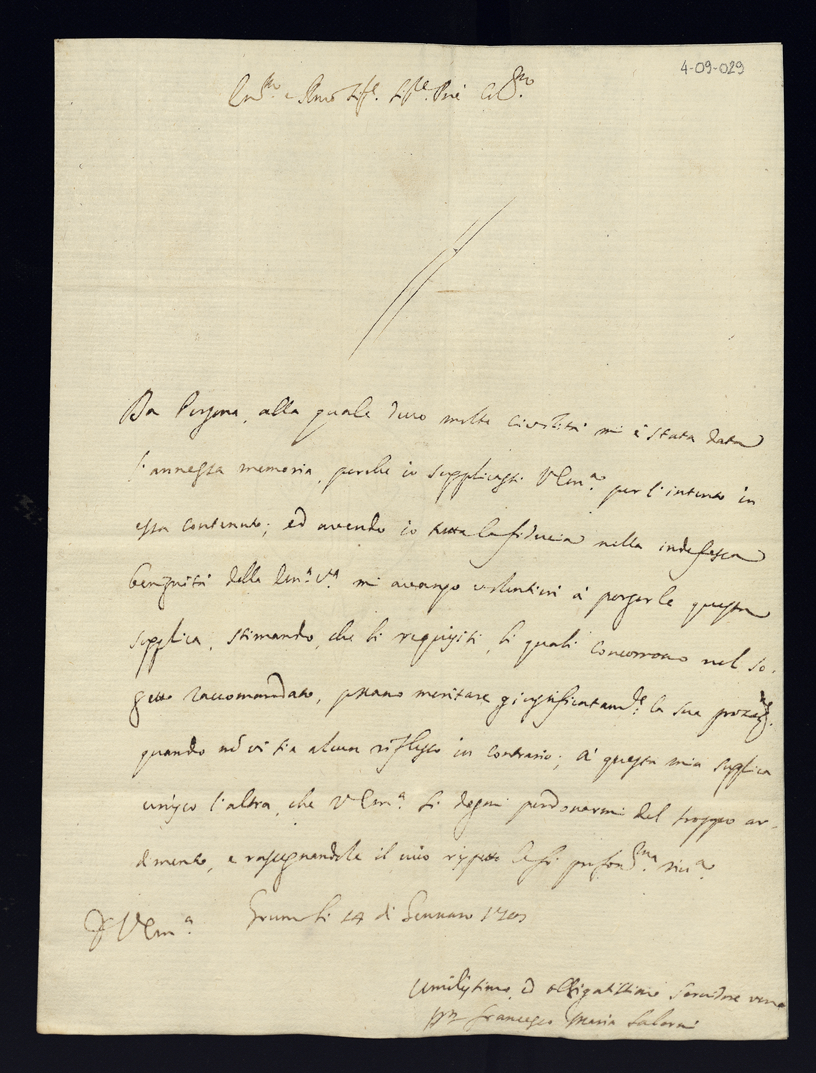 4-09-029
Em.mo e Rmo Sig.e Sig.e Pne Col.mo
Da Persona, alla quale devo molta civiltà mi è stata data
l'annessa memoria, perche io supplicassi V Em.a per l'intento in
essa contenuto; ed avendo io tutta la fiducia nella indefessa
benignità della Em.a V.a mi avanzo volentieri à porgerle questa
supplica, stimando, che li requisiti, li quali concorrono nel so-
getto raccomandato, possano meritare giustificatam.te la sua
quando nō vi sia alcun riflesso in contrario; à questa mia suplica
unisco l'altra, che V Em.a si degni perdonarmi del troppo ar-
dimento, e rassegnandole il mio rispetto le fò profond.ma riv.a
D V Em.a
li 14 di Gennaro
Umilissimo, ed obligatissimo Servidore vero
Francesco Maria